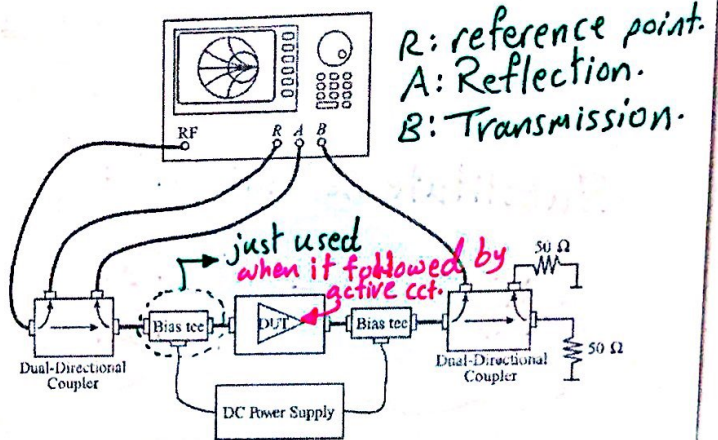 R: reference point.
A: Reflection.
B: Transmission.
RF
R A B
just used
when it followed by
active cct.
50 Ω
Bias tee
DUT
Bias tee
50 Ω
Dual-Directional
Coupler
Dual-Directional
Coupler
DC Power Supply